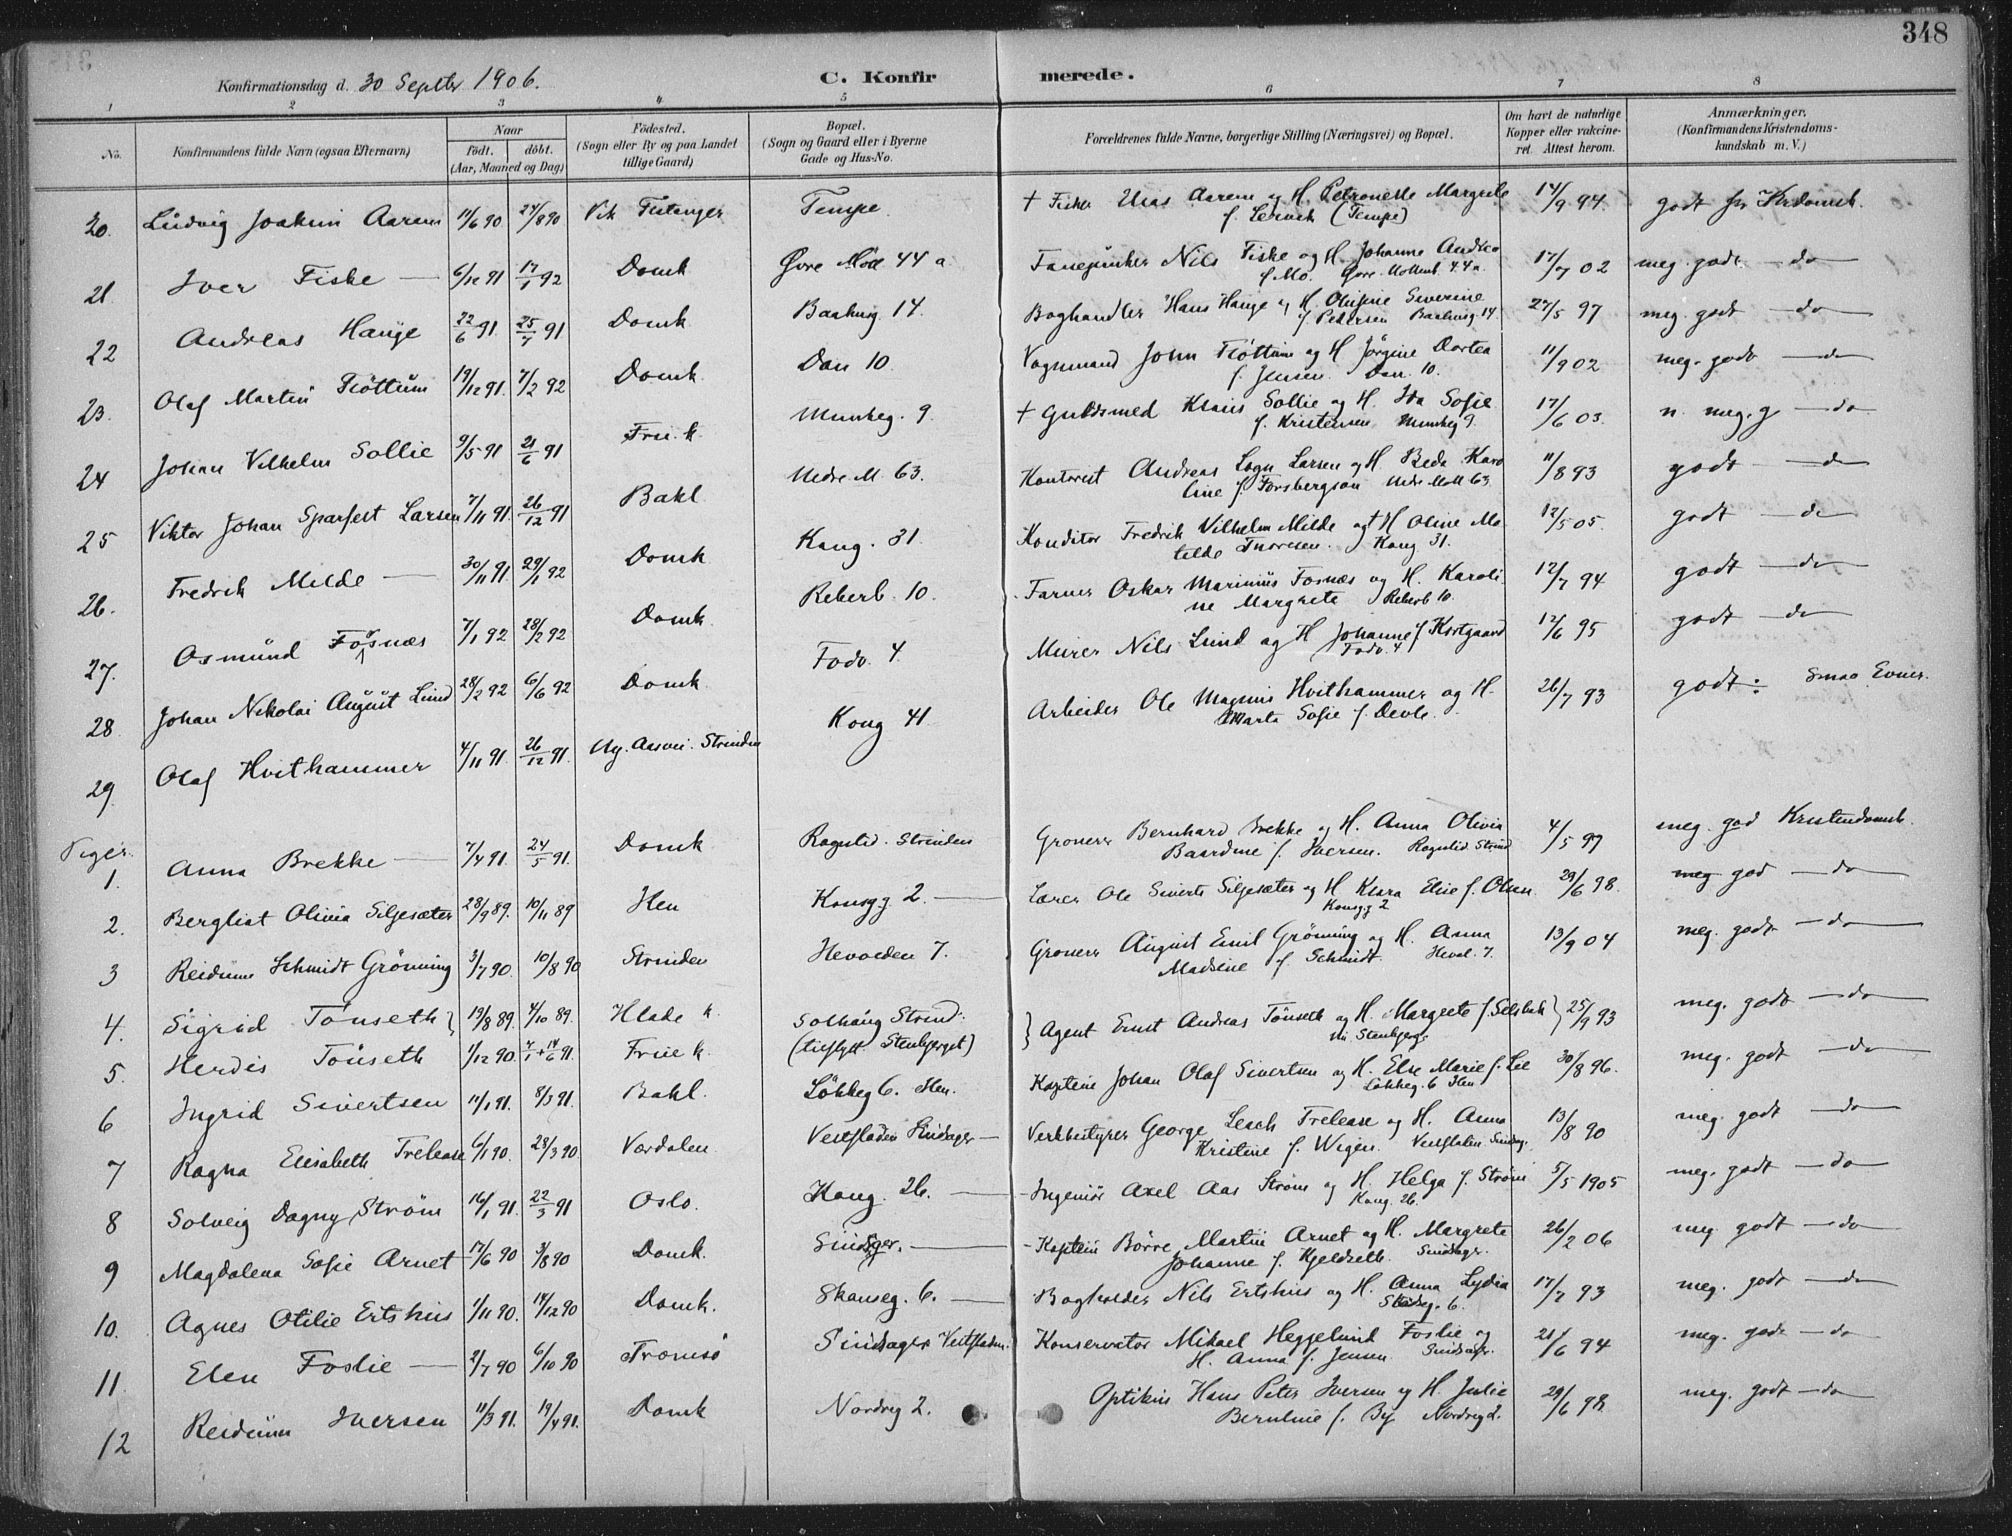 348
Konfirmationsdag d. 30 Septbr 1906. C. Konfirmerede.
1 2 3 4 5 6 7 8
No. Konfirmandens fulde Navn (ogsaa Efternavn) Naar Födt. döbt. (Aar, Maaned og Dag) Födested. (Sogn eller By og paa Landet tillige Gaard) Bopæl. (Sogn og Gaard eller i Byerne Gade og Hus-No. Forældrenes fulde Navne, borgerlige Stilling (Næringsvei) og Bopæl. Om havt de naturlige Kopper eller vakcineret. Attest herom. Anmærkninger. (Konfirmandens Kristendomskundskab m. V.)
20. Ludvig Joakim Aarem 11/6 90 24/8 90 Vik Tempe + Fisker Aarem og H. Petronelle Margrete f. Lervik (Tempe) 14/9 94. godt for Krdomsk.
21. Iver Fiske 6/12 91 17/1 92 Domk Øvre Möll 44 a Fanejunker Nils Fiske og H. Johanne Andrea f. Mo. Øvre Mollenb. 44a. 17/7 02 meg. godt do
22 Andreas Hauge 22/6 91 25/7 91 Domk Baahusg. 14. Boghandler Hans Hauge og H. Olufine Severine f. Pedersen Baahusg. 14 27/5 97 meg. godt do
23. Olaf Martin Fløttum 19/12 91. 7/2 92 Domk Dan 10. Vognmand John Fløttum og H Jörgine Dortea f. Jensen. Dan. 10. 11/9 02 meg. godt do
24 Johan Vilhelm Sollie 9/5 91 21/6 91 Frue k. Munkeg. 9. + Guldsmed Klaus Sollie og H. Ida Sofie f. Kristensen Munkeg 9. 17/6 03. n. meg. g do
25 Viktor Johan Sparfest Larsen 7/11 91. 26/12 91 Bakl Nedre M. 63. Kontorist Andreas Larsen og H. Beda Karoline f. Forsbergson Nedre Moll 63 11/8 93 godt do
26. Fredrik Milde 30/11 91. 29/1 92 Domk Kong. 31. Konditor Fredrik Vilhelm Milde og + H Oline Matilde Thoresen. Kong 31. 12/5 05. godt do
27. Osmund Fosnæs 7/1 92 28/2 92 Domk Reberb. 10. Farver Oskar Marinius Fosnæs og H. Karoline Margrete Reberb 10. 12/7 94 godt do
28 Johan Nikolai August Lund 28/2 92 6/6 92 Domk. Fodv. 4. Murer Nils Lund og H Johanne f. Kortgaard Fodv. 4 12/6 95 godt do
29 Olaf Hvithammer 4/11 91. 26/12 91. Ny. Aasvei. Strinden Kong 41 Arbeider Ole Magnus Hvithammer og H. Marta Sofie f. Devle. 26/7 93 godt: Smaa Evner.
Piger.
1. Anna Brekke 7/4 91. 24/5 91. Domk Rognlid. Strinden Groserer Bernhard Brekke og H. Anna Olivia Baardine f. Iversen. Rognlid. Strind 4/5 97 meg. god Kristendomsk.
2. Bergliot Olivia Siljesæter 28/9 89. 10/11 89 Hen Kongsg 2. Lærer Ole Siverts Siljesæter og H Klara Elise f. Olsen Kongsg 2 29/6 98. meg god do
3 Reidunn Schmidt Grönning 3/7 90. 10/8 90 Strinden Hevolden 7. Groserer August Emil Grönning og H. Anna Madsine f. Schmidt. Hevol. 7. 13/9 04 meg. godt do
4. Sigrid Tönseth 19/8 89. 4/10 89. Hlade k. Solhaug Strind. } Agent Ernst Andreas Tönseth og H. Margrete f. Selsbak } 25/9 93 meg. godt do
5. Herdis Tönseth 1/12 90. 4/1 + 14/6 91. Frue k. (tilflytt. Stenbjerget) Stenbjerg.
6 Ingrid Sivertsen 11/1 91. 8/3 91. Bakl. Lökkeg 6. Ilen. Kaptein Johan Olaf Sivertsen og H. Else Marie f. Lee Lökkeg. 6 Ilen 30/8 96. meg. godt do
7 Ragna Elisabeth Trelease 6/1 90. 23/3 90. Værdalen. Vestfladen Sindsager Verksbestyrer George Leach Trelease og H. Anna Kristine f. Wigen. Vestfladen Sindsag. 13/8 90 meg. godt do
8 Solveig Dagny Strøm 16/1 91. 22/3 91 Oslo. Kong. 26. Ingeniör Axel Aas Strøm og H. Helga f. Ström Kong. 26. 5/5 1905 meg. godt do
9 Magdalena Sofie Arnet 17/6 90 3/8 90 Domk. Sindsger. Kaptein Börre Martin Arnet og H. Margrete Johanne f. Kjeldseth Sindsager. 26/2 06 meg. godt do
10. Agnes Otilie Ertshus 1/11 90. 14/12 90 Domk. Skanseg. 6. Bogholder Nils Ertshus og H. Anna Lydia Skanseg. 6. 17/7 93 meg. godt do
11. Elen Foslie 2/7 90 6/10 90 Tromsö Sindsager Vestfladen. Konservator Mikael Heggelund Foslie og H. Anna f. Jensen. Sindsagr. 21/6 94 meg. godt do
12 Reidunn Iversen 11/3 91. 19/4 91. Domk Nordreg 2. Optikus Hans Peter Iversen og H. Julie Berntine f. By Nordreg 2. 29/6 98 meg. godt do